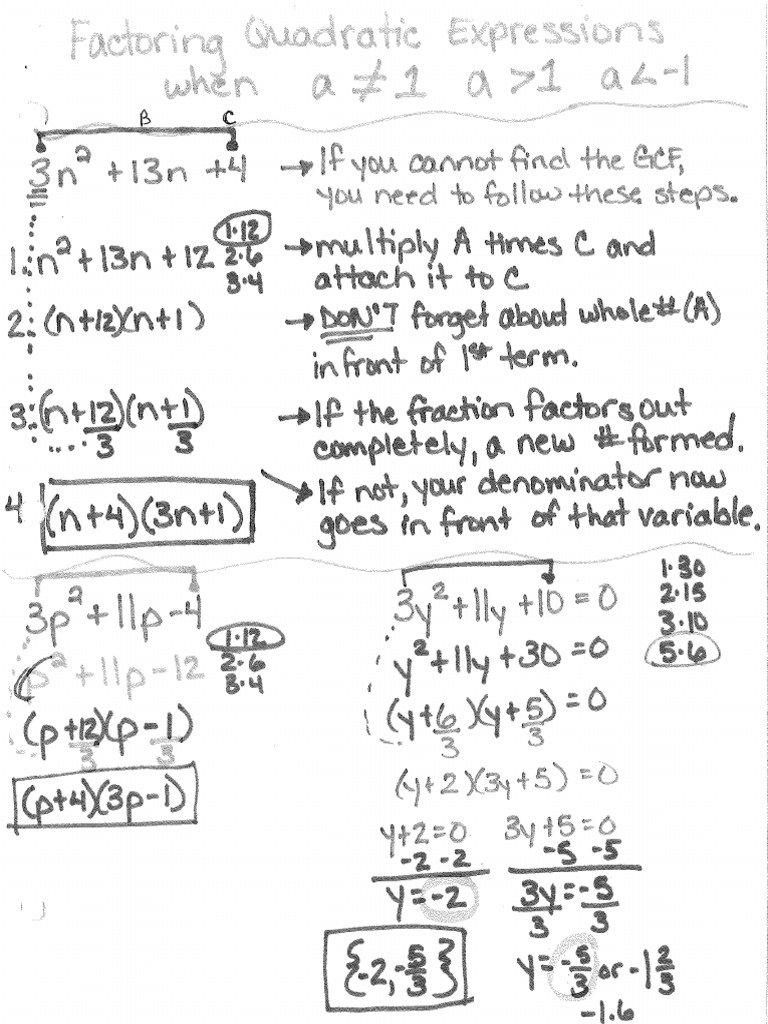 Factoring Quadratic Expressions
when a ≠ 1 a > 1 a < -1
B C
3n² + 13n + 4 → If you cannot find the GCF,
you need to follow these steps.
1. n² + 13n + 12 1·12 2·6 3·4 → multiply A times C and
attach it to C
2. (n+12)(n+1) → DON'T forget about whole # (A)
in front of 1st term.
3. (n+12/3)(n+1/3) → If the fraction factors out
completely, a new # formed.
4 (n+4)(3n+1) → If not, your denominator now
goes in front of that variable.
3p² + 11p - 4
1·12
2·6
3·4
p² + 11p - 12
(p+12/3)(p-1/3)
(p+4)(3p-1)
3y² + 11y + 10 = 0
1·30
2·15
3·10
5·6
y² + 11y + 30 = 0
(y+6/3)(y+5/3) = 0
(y+2)(3y+5) = 0
y+2=0 3y+5=0
-2 -2 -5 -5
y = -2 3y/3 = -5/3
{-2, -5/3} y = -5/3 or -1 2/3
-1.6